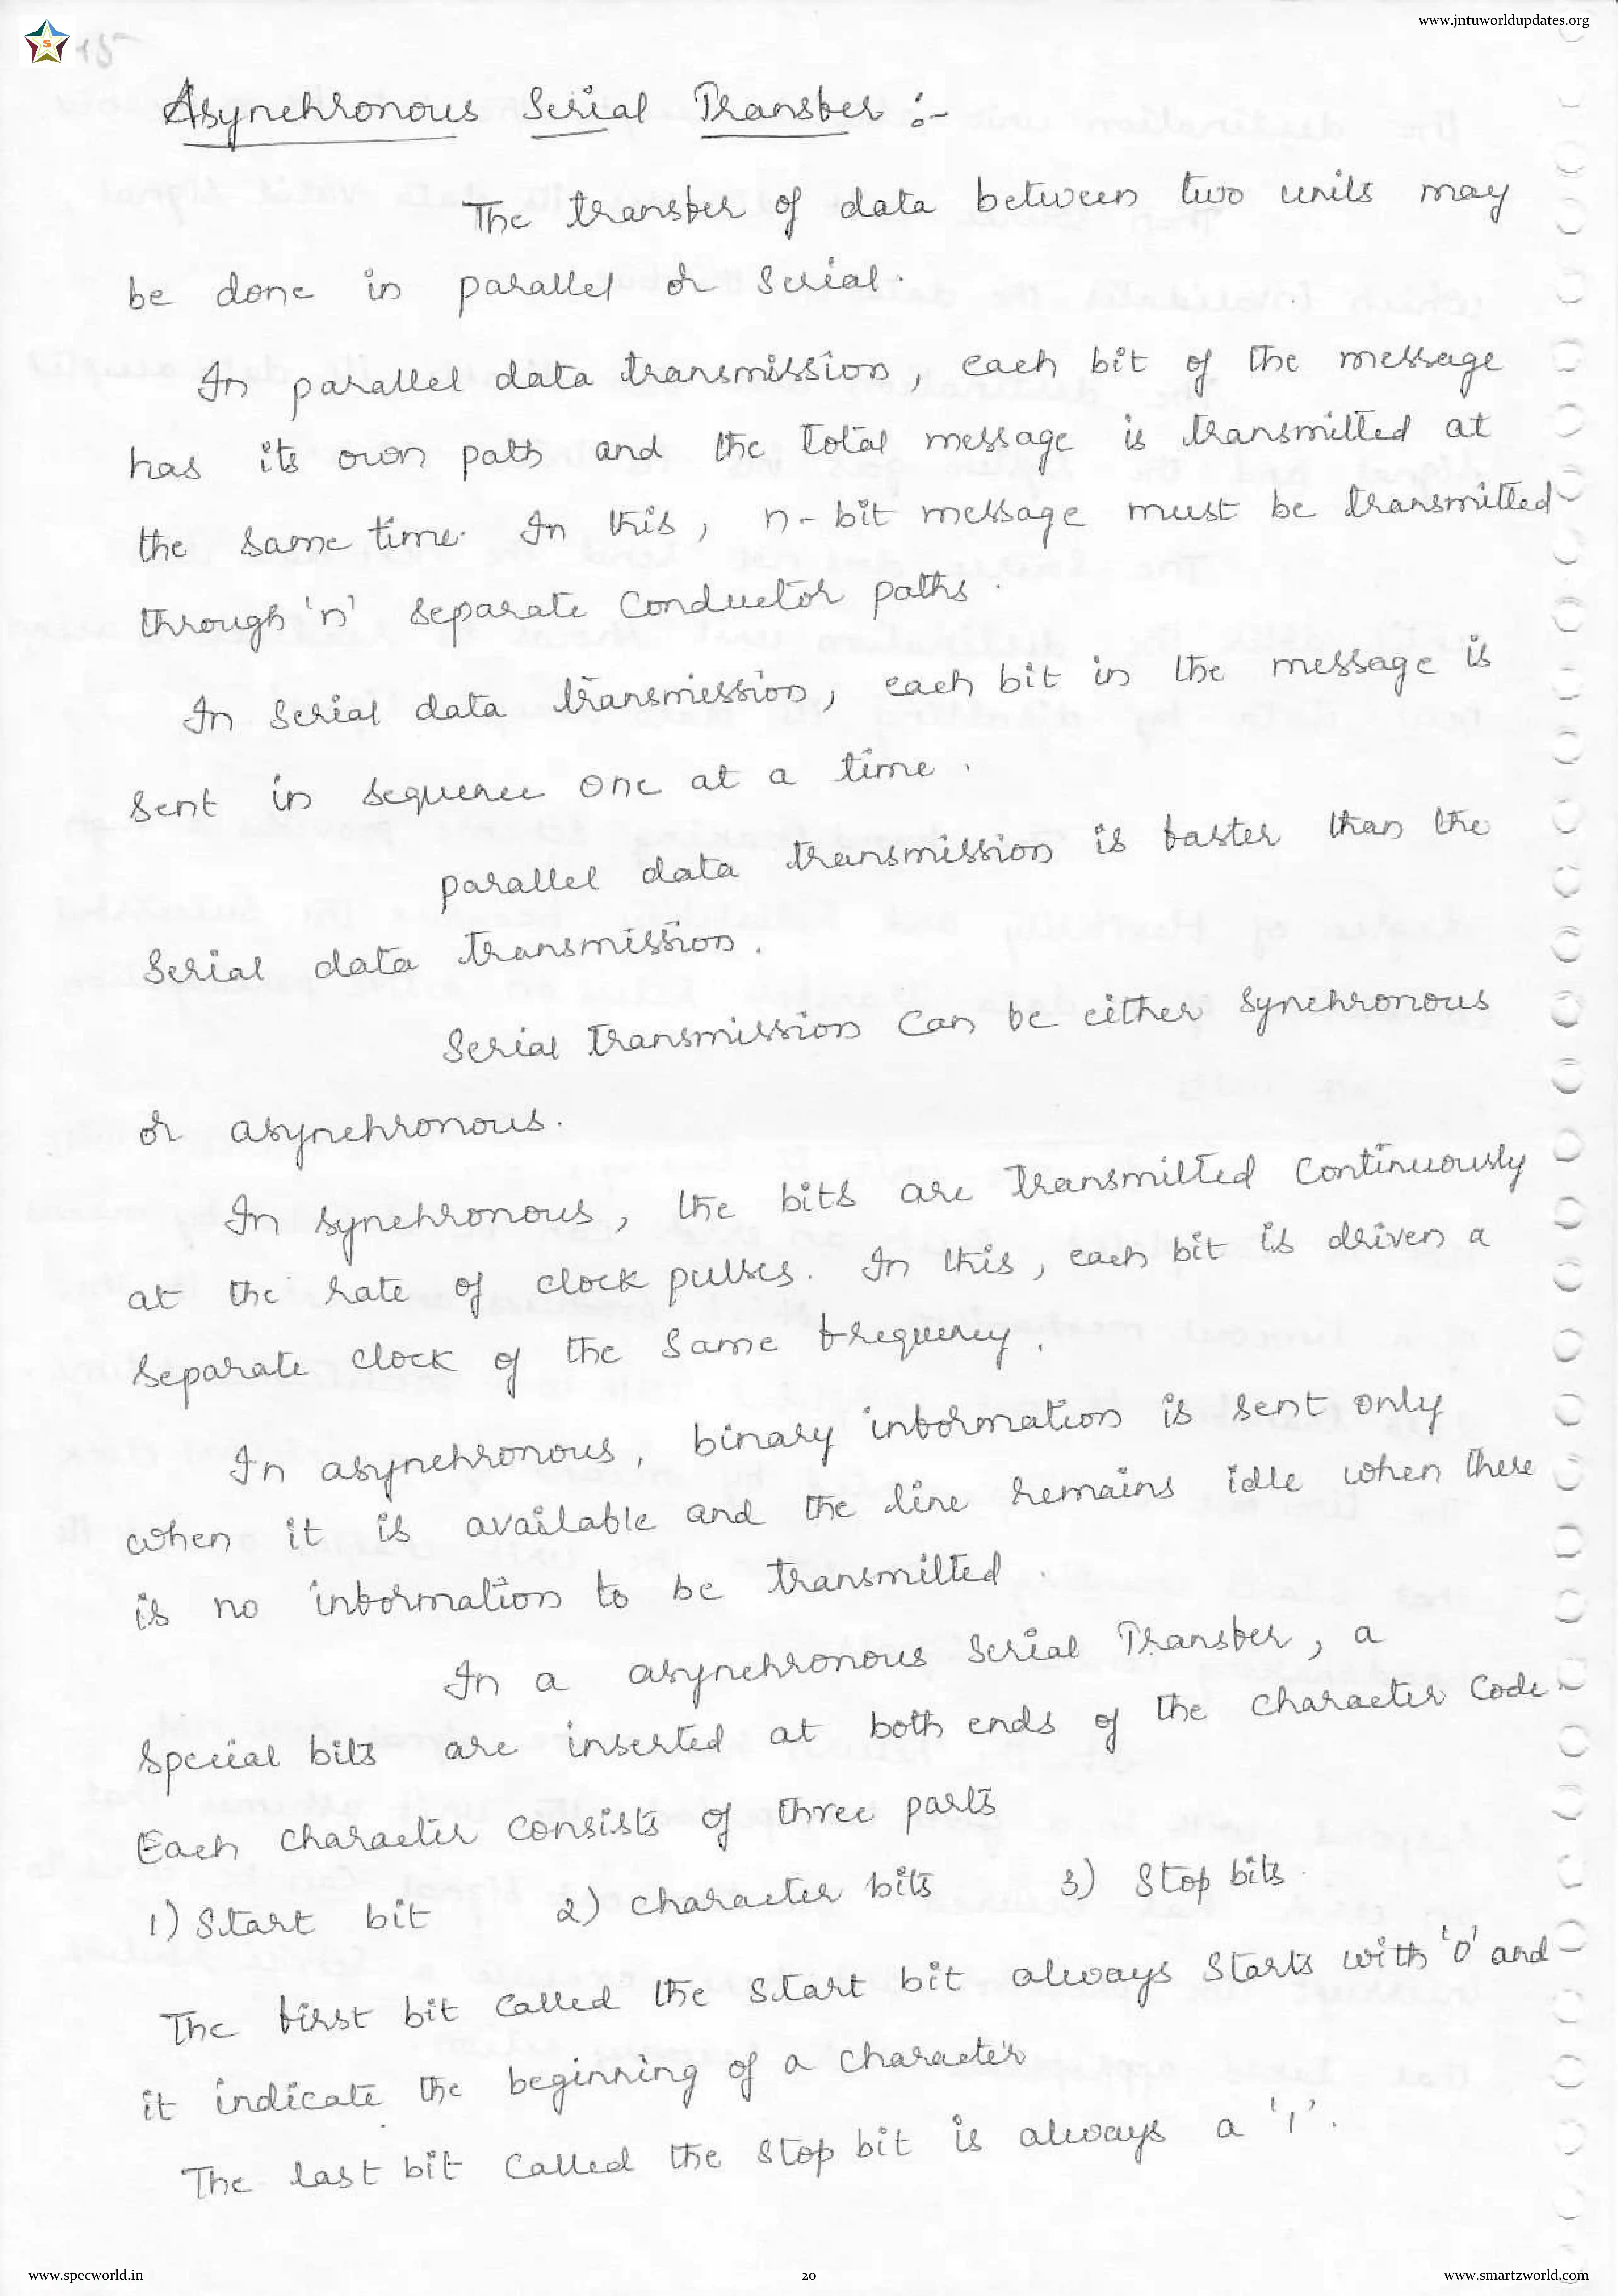 www.jntuworldupdates.org
S
15
Asynchronous Serial Transfer :-
The transfer of data between two units may
be done in parallel or serial.
In parallel data transmission, each bit of the message
has its own path and the total message is transmitted at
the same time. In this, n-bit message must be transmitted
through 'n' separate conductor paths.
In serial data transmission, each bit in the message is
sent in sequence one at a time.
parallel data transmission is faster than the
serial data transmission.
Serial transmission can be either synchronous
or asynchronous.
In synchronous, the bits are transmitted continuously
at the rate of clock pulses. In this, each bit is driven a
separate clock of the same frequency.
In asynchronous, binary information is sent only
when it is available and the line remains idle when there
is no information to be transmitted.
In a asynchronous serial Transfer, a
special bits are inserted at both ends of the character code
Each character consists of three parts
1) Start bit 2) character bits 3) Stop bits.
The first bit called the start bit always starts with '0' and
it indicate the beginning of a character
The last bit called the stop bit is always a '1'.
www.specworld.in 20 www.smartzworld.com